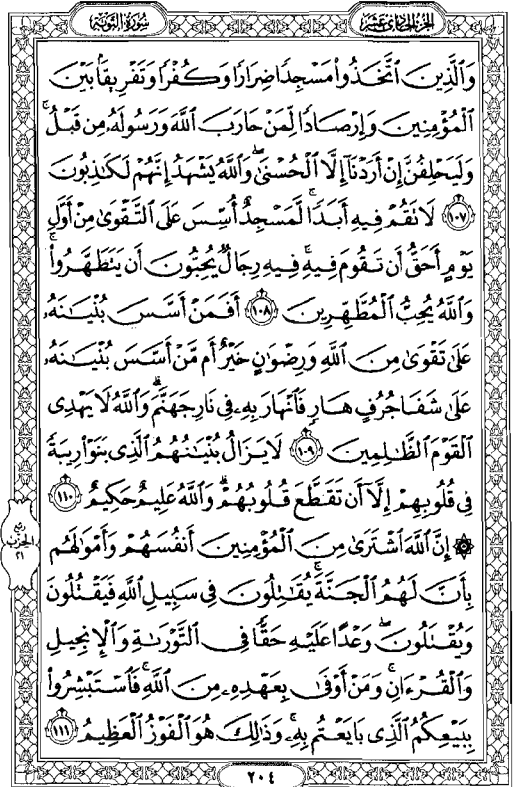 سُورَةُ التَّوْبَةِ
الجُزْءُ الحَادِي عَشَرَ
وَالَّذِينَ اتَّخَذُوا مَسْجِدًا ضِرَارًا وَكُفْرًا وَتَفْرِيقًا بَيْنَ
الْمُؤْمِنِينَ وَإِرْصَادًا لِّمَنْ حَارَبَ اللَّهَ وَرَسُولَهُ مِن قَبْلُ ۚ
وَلَيَحْلِفُنَّ إِنْ أَرَدْنَا إِلَّا الْحُسْنَىٰ ۖ وَاللَّهُ يَشْهَدُ إِنَّهُمْ لَكَاذِبُونَ
١٠٧ لَا تَقُمْ فِيهِ أَبَدًا ۚ لَّمَسْجِدٌ أُسِّسَ عَلَى التَّقْوَىٰ مِنْ أَوَّلِ
يَوْمٍ أَحَقُّ أَن تَقُومَ فِيهِ ۚ فِيهِ رِجَالٌ يُحِبُّونَ أَن يَتَطَهَّرُوا ۚ
وَاللَّهُ يُحِبُّ الْمُطَّهِّرِينَ ١٠٨ أَفَمَنْ أَسَّسَ بُنْيَٰنَهُۥ
عَلَىٰ تَقْوَىٰ مِنَ اللَّهِ وَرِضْوَٰنٍ خَيْرٌ أَم مَّنْ أَسَّسَ بُنْيَٰنَهُۥ
عَلَىٰ شَفَا جُرُفٍ هَارٍ فَانْهَارَ بِهِۦ فِي نَارِ جَهَنَّمَ ۗ وَاللَّهُ لَا يَهْدِي
الْقَوْمَ الظَّٰلِمِينَ ١٠٩ لَا يَزَالُ بُنْيَٰنُهُمُ الَّذِي بَنَوْا رِيبَةً
فِي قُلُوبِهِمْ إِلَّا أَن تَقَطَّعَ قُلُوبُهُمْ ۗ وَاللَّهُ عَلِيمٌ حَكِيمٌ ١١٠
۞ إِنَّ اللَّهَ اشْتَرَىٰ مِنَ الْمُؤْمِنِينَ أَنفُسَهُمْ وَأَمْوَٰلَهُم
بِأَنَّ لَهُمُ الْجَنَّةَ ۚ يُقَٰتِلُونَ فِي سَبِيلِ اللَّهِ فَيَقْتُلُونَ
وَيُقْتَلُونَ ۖ وَعْدًا عَلَيْهِ حَقًّا فِي التَّوْرَىٰةِ وَالْإِنجِيلِ
وَالْقُرْءَانِ ۚ وَمَنْ أَوْفَىٰ بِعَهْدِهِۦ مِنَ اللَّهِ ۚ فَاسْتَبْشِرُوا
بِبَيْعِكُمُ الَّذِي بَايَعْتُم بِهِۦ ۚ وَذَٰلِكَ هُوَ الْفَوْزُ الْعَظِيمُ ١١١
ربع
الحزب
٢١
٢٠٤